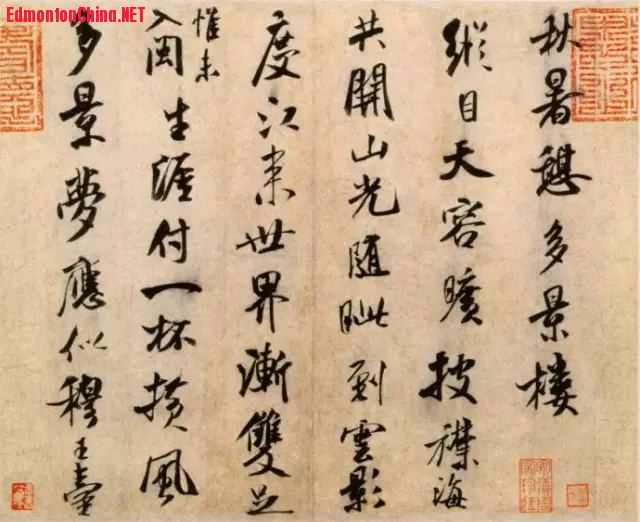 EdmontonChina.NET
秋暑憇多景樓
縱目天容曠披襟海
共開山光隨眦到雲影
度江來世界漸雙足
惟未
入閩生涯付一杯橫風
多景夢應似穆王臺